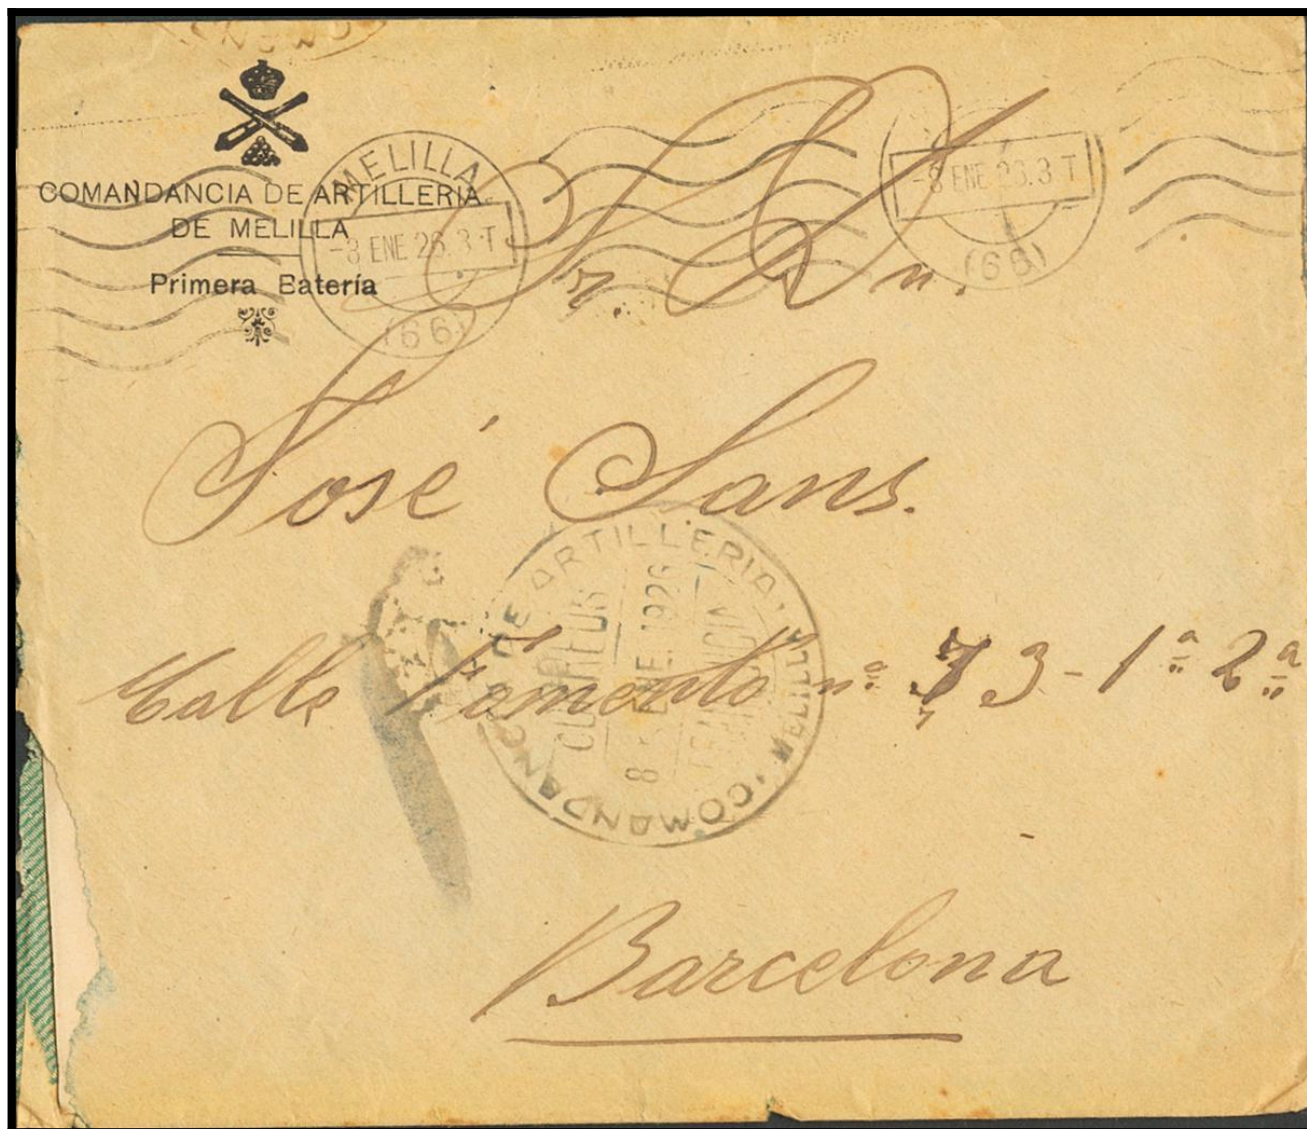 COMANDANCIA DE ARTILLERIA
DE MELILLA
Primera Eatería
MELILLA
-8 ENE 26.3 T
(66)
-8 ENE 26.3 T
(66)
Sr. Dn.
José Sans.
COMANDANCIA DE ARTILLERIA · MELILLA ·
8 ENE. 1926
FRANQUICIA
Calle Fomento nº 73 - 1ª 2ª
Barcelona